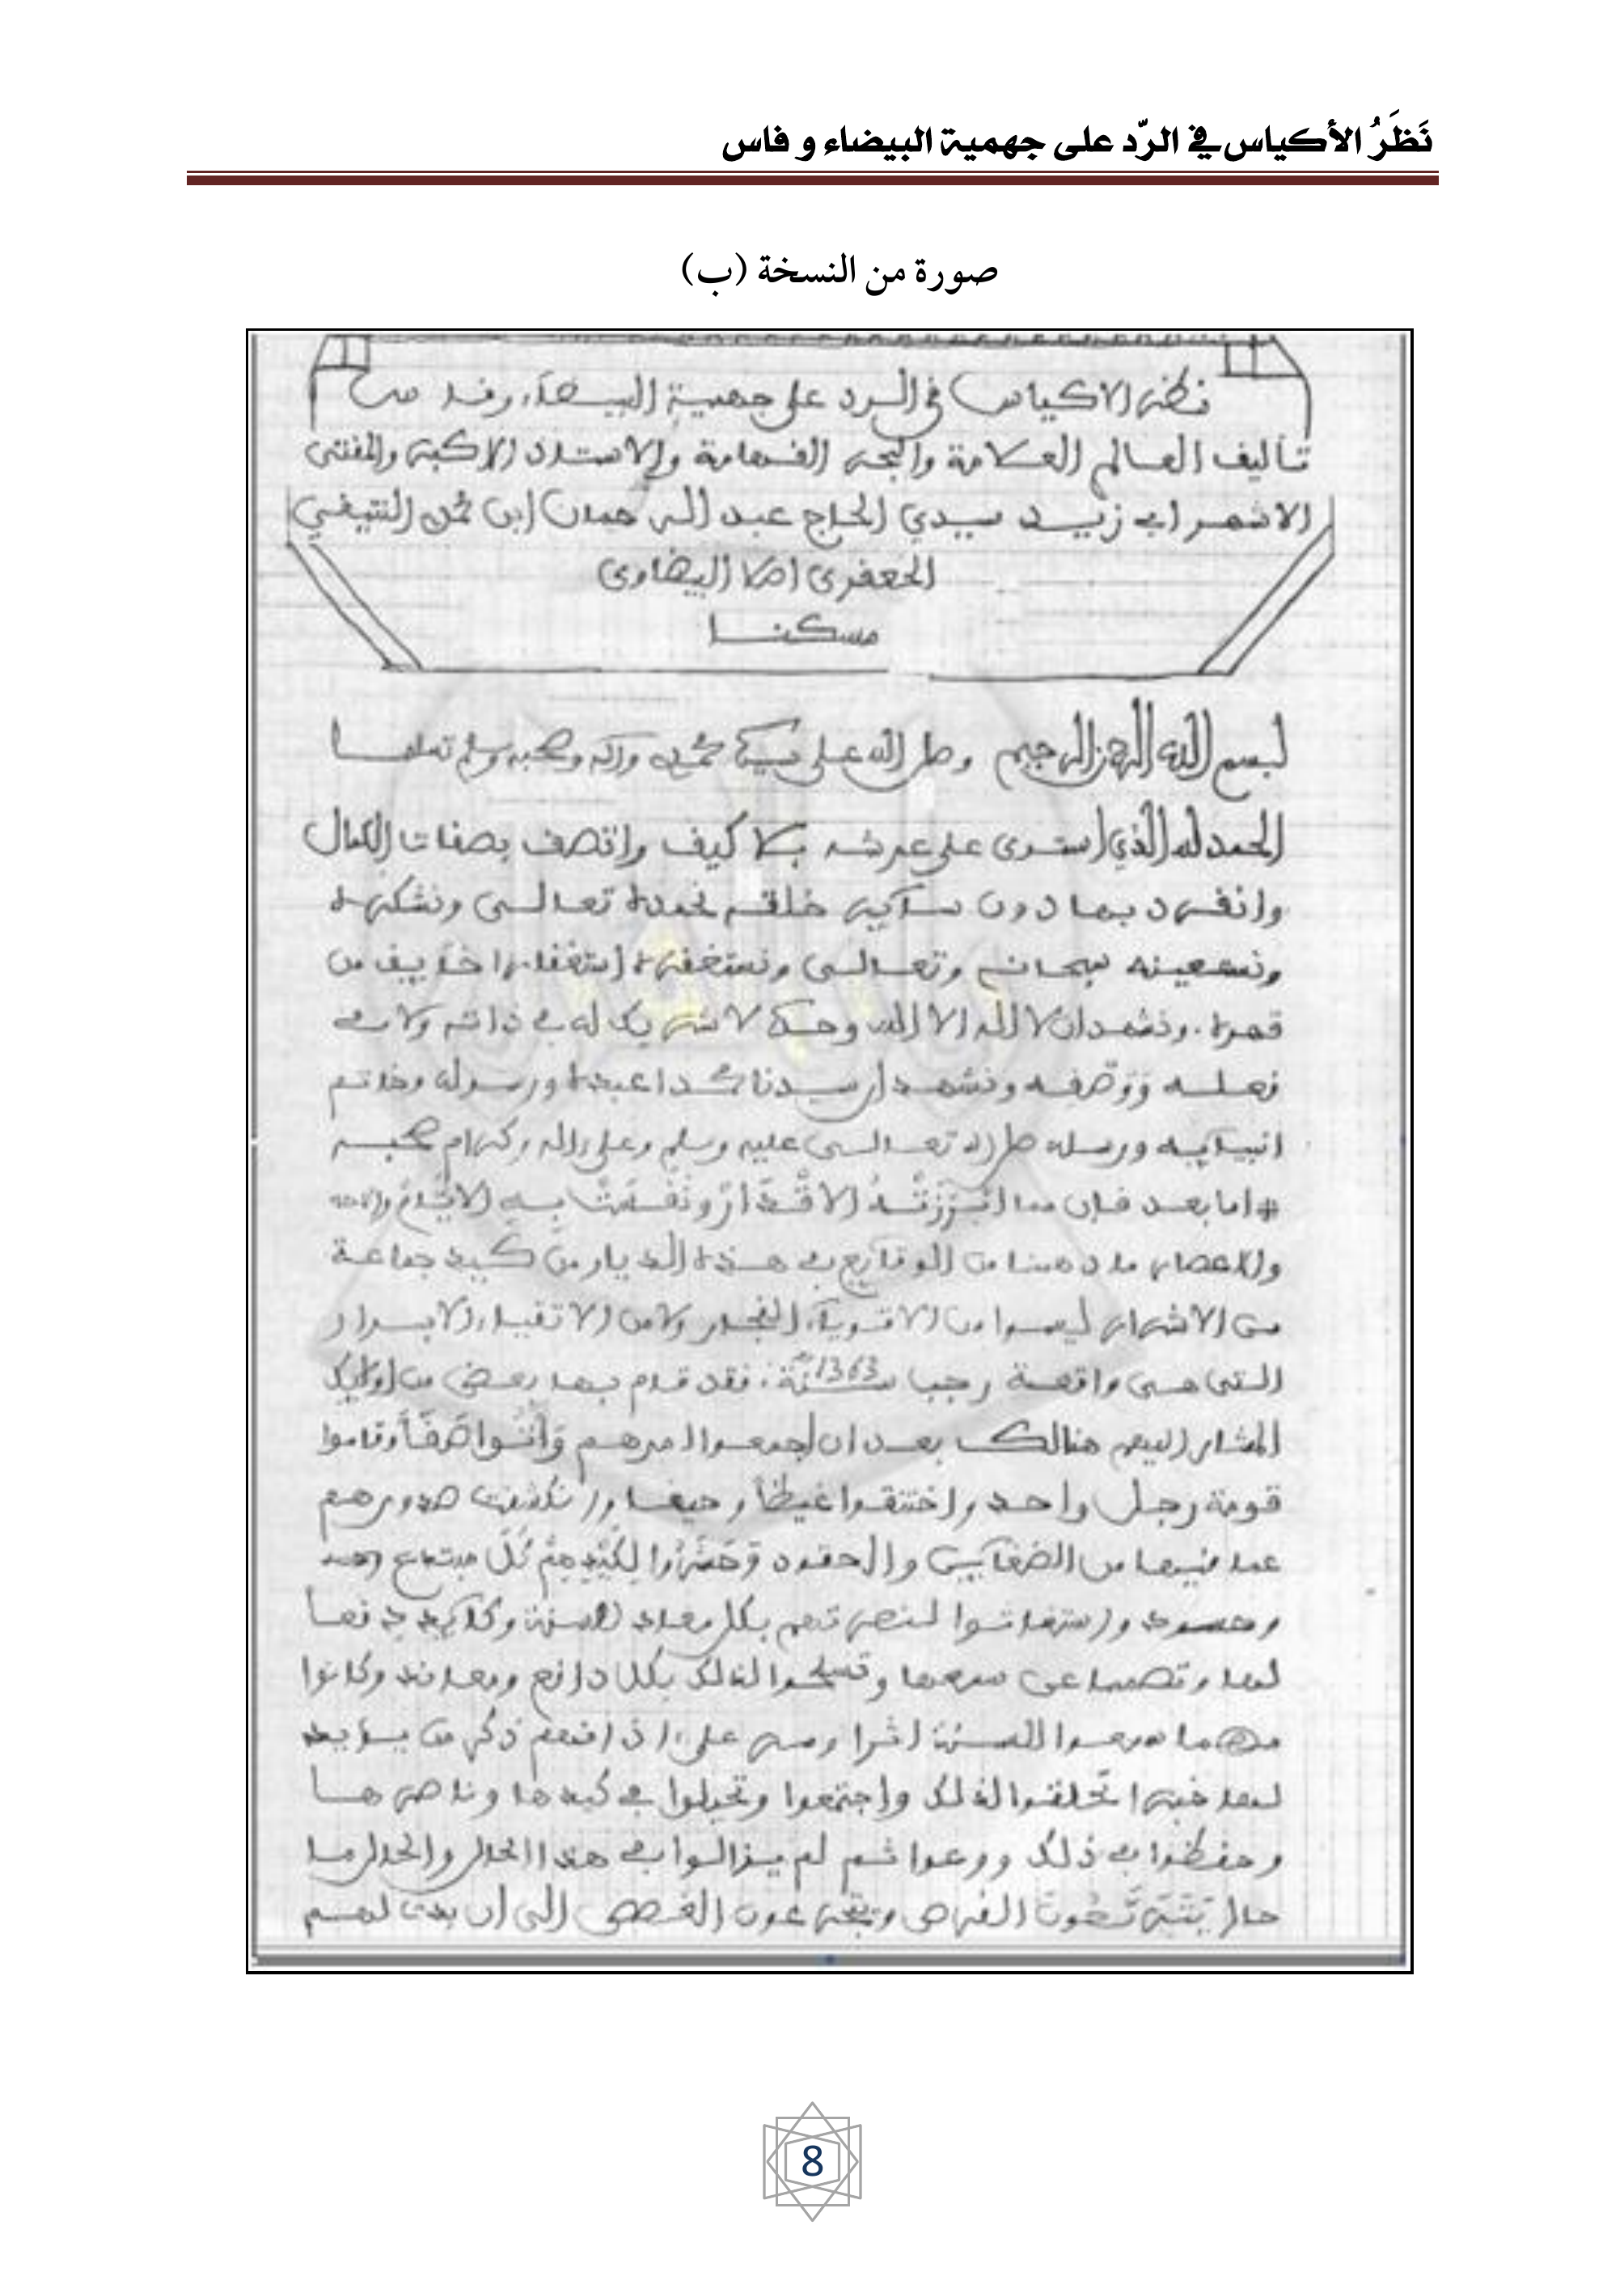 نَظَرُ الأكياس في الرّد على جهمية البيضاء و فاس
صورة من النسخة (ب)
نظر الاكياس في الرد على جهمية البيضاء وفاس
تأليف العالم العلامة والبحر الفهامة والاستاذ الاكبر والمفتى
الاشهر ابى زيد سيدي الحاج عبد الرحمان ابن محمد النتيفي
الجعفرى اصلا البيضاوى
مسكنا
بسم الله الرحمن الرحيم وصلى الله على سيدنا محمد وآله وصحبه وسلم تسليما
الحمد لله الذي استوى على عرشه بلا كيف واتصف بصفات الكمال
وانفرد بها دون سآير خلقه نحمده تعالى ونشكره
ونستعينه سبحانه وتعالى ونستغفره استغفار خآيف من
قهره . ونشهد ان لا اله الا الله وحده لا شريك له في ذاته ولا في
فعله ووصفه ونشهد ان سيدنا محمدا عبده ورسوله وخاتم
انبيآيه ورسله صلى الله تعالى عليه وسلم وعلى اله وكرام صحبه
# اما بعد فإن مما ابرزته الاقدار ونفست به الايام
والاعصار ما دهمنا من الوقايع في هذه الديار من كيد جماعة
من الاشرار ليسوا من الاقويآء الفجار ولا من الاتقياء الابرار
التى هى واقعة رجب سنة 1363 فقد قام بها بعض من اولايك
المشار اليهم هنالك بعد ان اجمعوا امرهم وأتوا صفا وقاموا
قومة رجل واحد واختنقوا غيظا وانكشفت صدورهم
عما فيها من الضغآين والحقود وحشروا لكيدهم كل
وحسود واستغاثوا لنصرتهم بكل معاد للسنة وكآيد دفعا
لها وتصميما عن سمعها وتسلحوا لذالك بكل دافع ومعاند وكانوا
مهما سمعوا للسنة اثرا ومر على اذانهم ذكر من يؤيد
لها خبرا تحلقوا لذلك واجتمعوا وتحيلوا في كيدها وناصرها
وحفظوا في ذلك ووعوا ثم لم يزالوا في هذا الحال والحال ما
حال يتربصون الفرص ويتجرعون الغصص الى ان بدت لهم
8